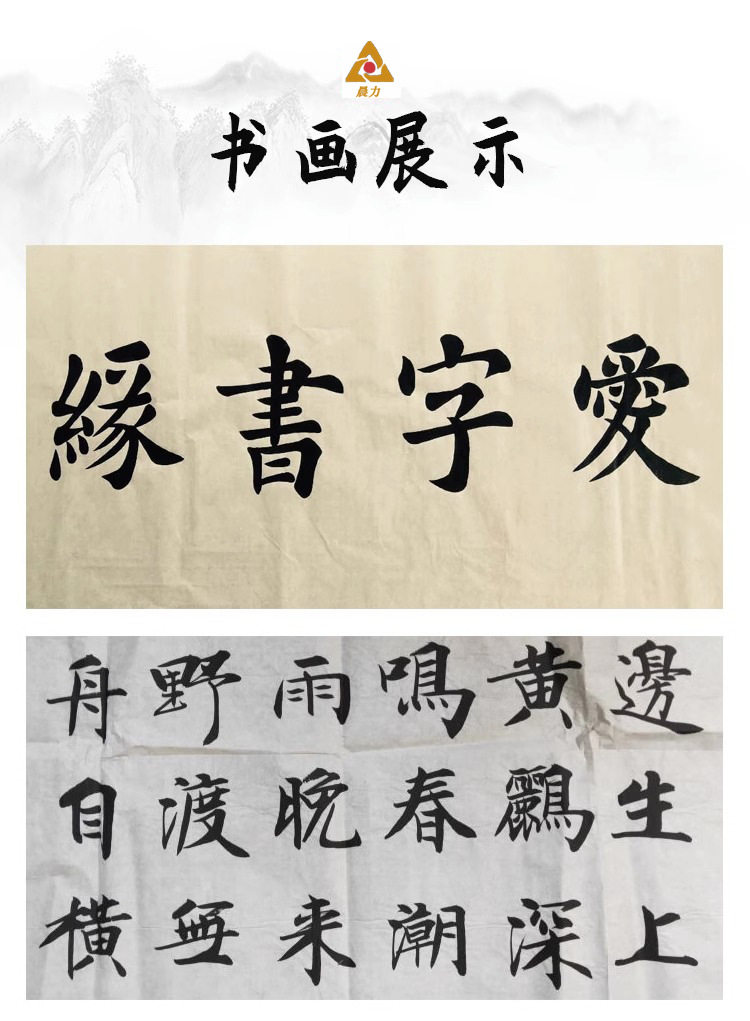 晨力
书画展示
愛字書緣
邊生上
黄鸝深
鳴春潮
雨晚来
野渡無
舟自横